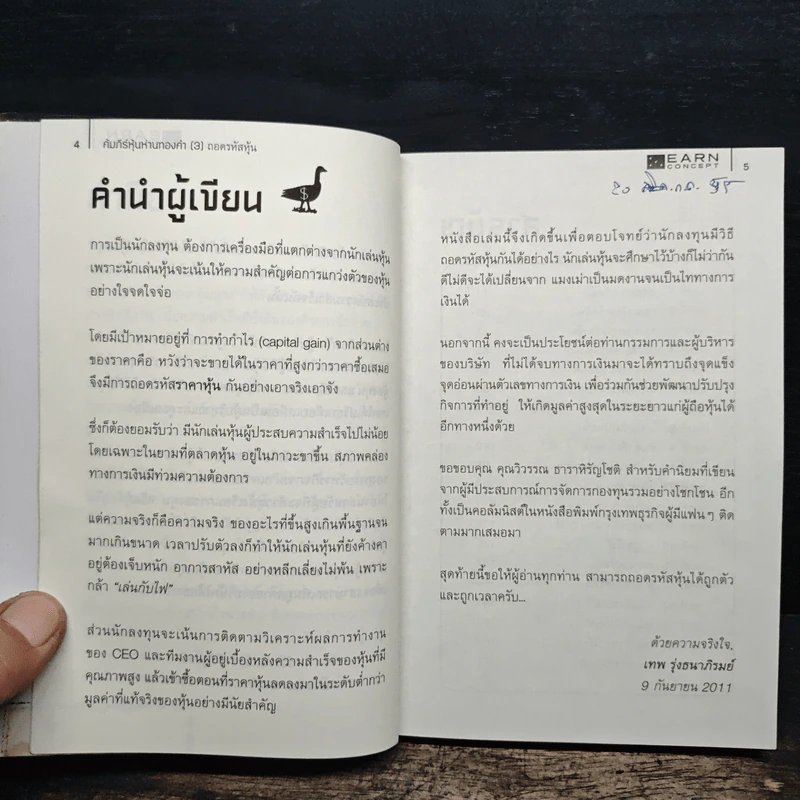 4 คัมภีร์หุ้นห่านทองคำ (3) ถอดรหัสหุ้น
คำนำผู้เขียน
$
การเป็นนักลงทุน ต้องการเครื่องมือที่แตกต่างจากนักเล่นหุ้น
เพราะนักเล่นหุ้นจะเน้นให้ความสำคัญต่อการแกว่งตัวของหุ้น
อย่างใจจดใจจ่อ
โดยมีเป้าหมายอยู่ที่ การทำกำไร (capital gain) จากส่วนต่าง
ของราคาคือ หวังว่าจะขายได้ในราคาที่สูงกว่าราคาซื้อเสมอ
จึงมีการถอดรหัสราคาหุ้น กันอย่างเอาจริงเอาจัง
ซึ่งก็ต้องยอมรับว่า มีนักเล่นหุ้นผู้ประสบความสำเร็จไปไม่น้อย
โดยเฉพาะในยามที่ตลาดหุ้น อยู่ในภาวะขาขึ้น สภาพคล่อง
ทางการเงินมีท่วมความต้องการ
แต่ความจริงก็คือความจริง ของอะไรที่ขึ้นสูงเกินพื้นฐานจน
มากเกินขนาด เวลาปรับตัวลงก็ทำให้นักเล่นหุ้นที่ยังค้างคา
อยู่ต้องเจ็บหนัก อาการสาหัส อย่างหลีกเลี่ยงไม่พ้น เพราะ
กล้า “เล่นกับไฟ”
ส่วนนักลงทุนจะเน้นการติดตามวิเคราะห์ผลการทำงาน
ของ CEO และทีมงานผู้อยู่เบื้องหลังความสำเร็จของหุ้นที่มี
คุณภาพสูง แล้วเข้าซื้อตอนที่ราคาหุ้นลดลงมาในระดับต่ำกว่า
มูลค่าที่แท้จริงของหุ้นอย่างมีนัยสำคัญ
EARN
CONCEPT 5
หนังสือเล่มนี้จึงเกิดขึ้นเพื่อตอบโจทย์ว่านักลงทุนมีวิธี
ถอดรหัสหุ้นกันได้อย่างไร นักเล่นหุ้นจะศึกษาไว้บ้างก็ไม่ว่ากัน
ดีไม่ดีจะได้เปลี่ยนจาก แมงเม่าเป็นมดงานจนเป็นไททางการ
เงินได้
นอกจากนี้ คงจะเป็นประโยชน์ต่อท่านกรรมการและผู้บริหาร
ของบริษัท ที่ไม่ได้จบทางการเงินมาจะได้ทราบถึงจุดแข็ง
จุดอ่อนผ่านตัวเลขทางการเงิน เพื่อร่วมกันช่วยพัฒนาปรับปรุง
กิจการที่ทำอยู่ ให้เกิดมูลค่าสูงสุดในระยะยาวแก่ผู้ถือหุ้นได้
อีกทางหนึ่งด้วย
ขอขอบคุณ คุณวิวรรณ ธาราหิรัญโชติ สำหรับคำนิยมที่เขียน
จากผู้มีประสบการณ์การจัดการกองทุนรวมอย่างโชกโชน อีก
ทั้งเป็นคอลัมนิสต์ในหนังสือพิมพ์กรุงเทพธุรกิจผู้มีแฟนๆ ติด
ตามมากเสมอมา
สุดท้ายนี้ขอให้ผู้อ่านทุกท่าน สามารถถอดรหัสหุ้นได้ถูกตัว
และถูกเวลาครับ...
ด้วยความจริงใจ,
เทพ รุ่งธนาภิรมย์
9 กันยายน 2011